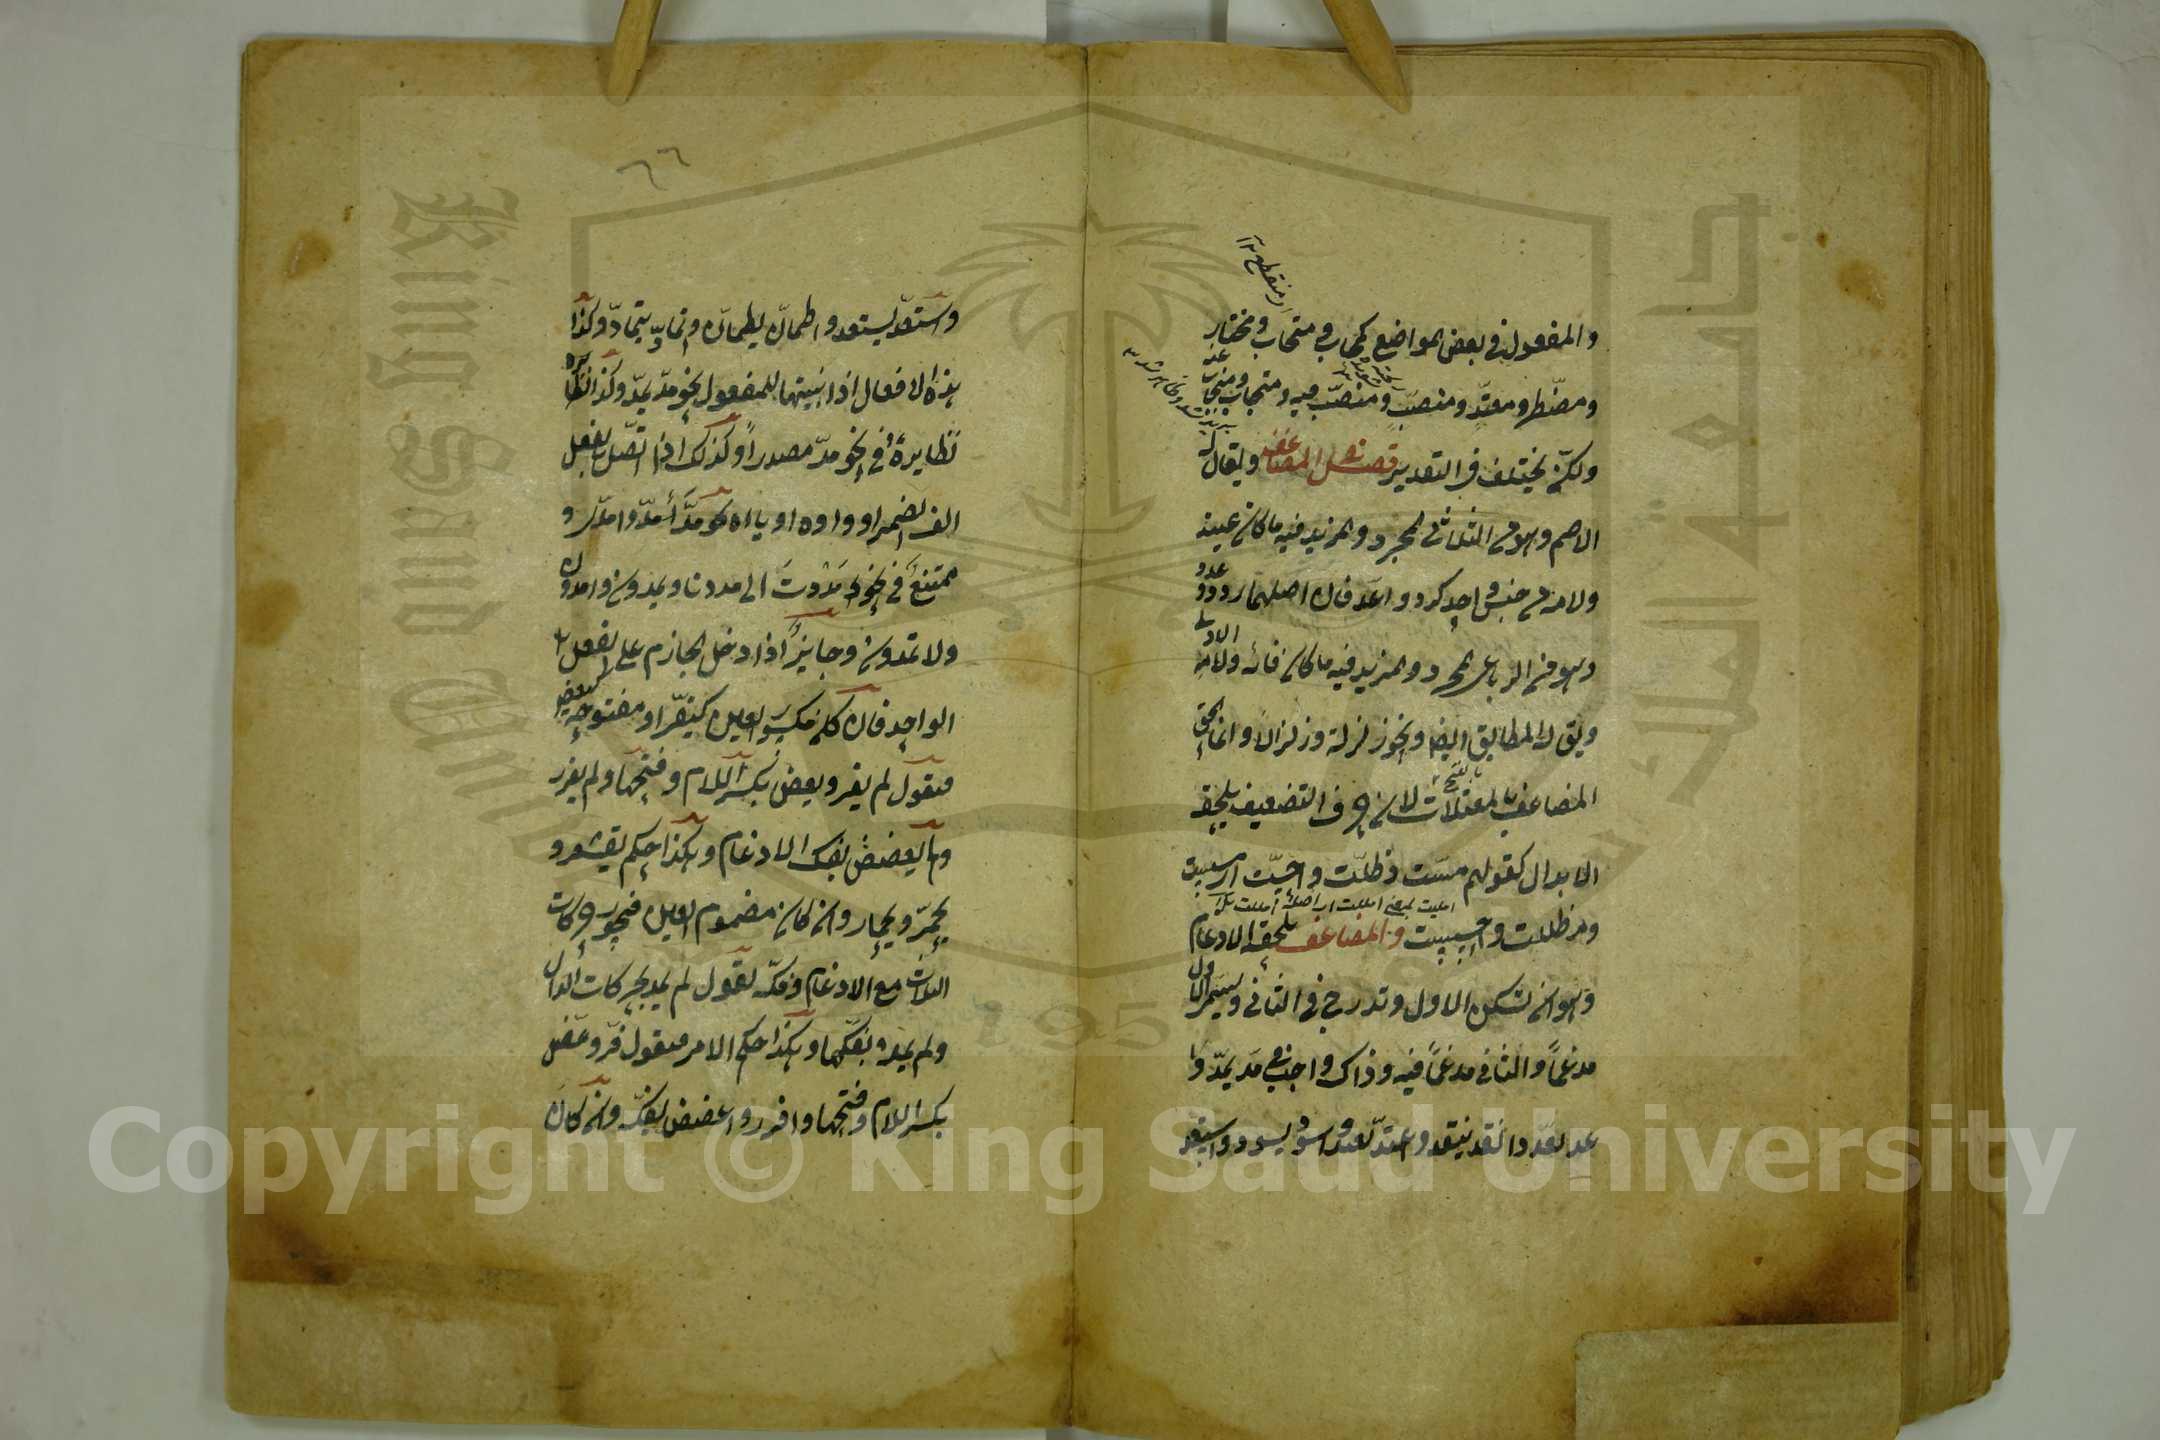 والمفعول في بعض المواضع كمحاب ومتحاب ومختار
ومضطر ومعتد ومنصب ومنصب فيه ومنجاب ومنجاب عنه
ولكنه يختلف في التقدير فصل المضاعف ويقال له
الاصم وهو من الثلاثي المجرد والمزيد فيه ما كان عينه
ولامه من جنس واحد كرد واعد فان اصلهما ردد واعدد
وهو من الرباعي المجرد والمزيد فيه ما كان فائه ولامه الاولى
ويق له المطابق ايضا ونحو زلزلة وزلزالا وانما الحق
المضاعف بالمعتلات لان حرف التضعيف يلحقه
الابدال كقولهم مست وظلت واحست ار مسست
وظللت واحسست والمضاعف يلحقه الادغام
وهو ان تسكن الاول وتدرج في الثاني ويسمى الاول
مدغماً والثاني مدغماً فيه وذاك واجب في مد يمد و
عد يعد وانقد ينقد واعتد يعتد واسود يسود
واستعدّ يستعد واطمانّ يطمانّ وتمادّ يتمادّ وكذا
هذه الافعال اذا بنيتها للمفعول نحو مدّ يمدّ وكذا نظائره
نظايره في نحو مدّ مصدراً وكذلك اذا اتّصل بالفعل
الف الضمير او واوه او ياءه نحو مدّا مدّوا مدّي و
ممتنع في نحو مَدَدتَ الى مددنا ويمددن وامددن
ولا تمددن وجايزٌ اذا دخل الجازم على الفعل
الواحد فان كان مكسور العين كيفرّ او مفتوحه كيعض
فتقول لم يفر ويعض بكسر اللام وفتحها ولم يفرر
ولم يعضض بفك الادغام وهكذا حكم يقشعر و
يحمرّ ويحمارّ وان كان مضموم العين فيجوز حركات
الثلاث مع الادغام وفكّه تقول لم يمد بحركات الدال
ولم يمدد بفكّها وهكذا حكم الامر فتقول فرّ وعضّ
بكسر اللام وفتحها وافرر واعضض بفكّه وان كان
King Saud University
1957
Copyright © King Saud University